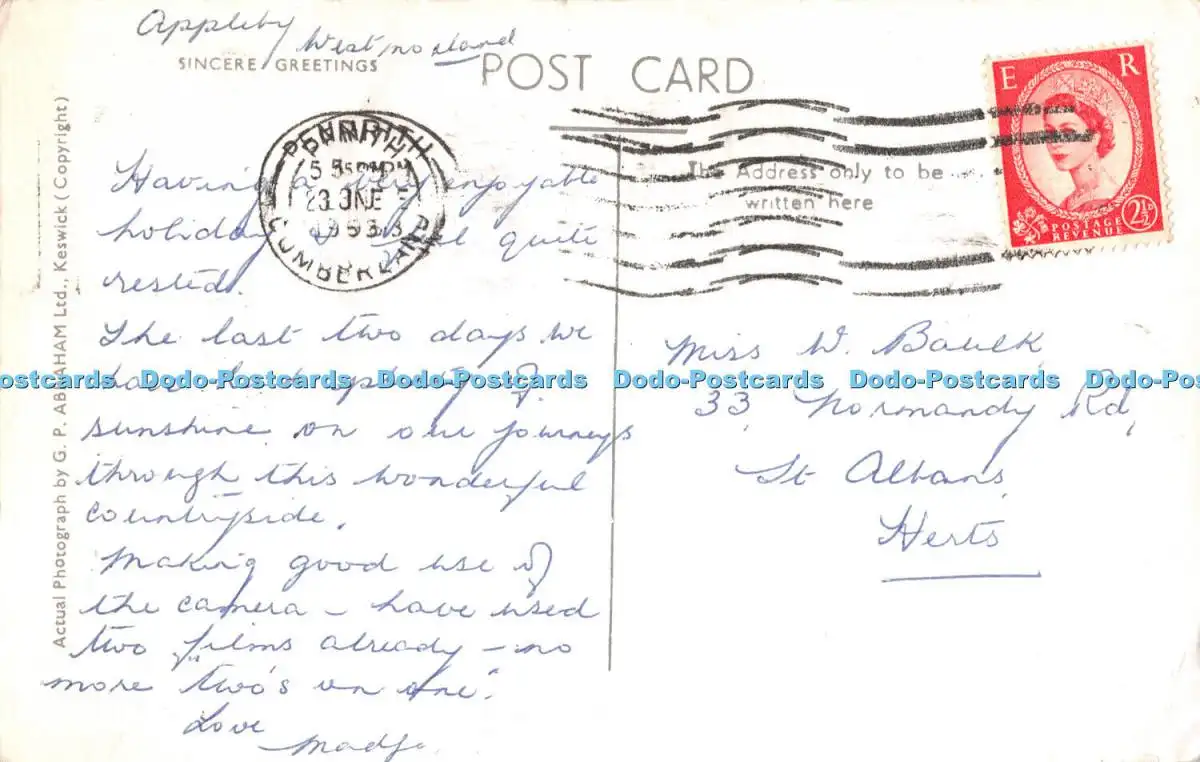 Appleby
Westmorland
SINCERE GREETINGS
POST CARD
E R
POSTAGE
REVENUE
2½D
PENRITH
CUMBERLAND
5 PM
23 JNE
1953
The Address only to be
written here
Having a very enjoyable
holiday & feel quite
rested.
The last two days we
have had plenty of
sunshine on our journeys
through this wonderful
countryside.
Making good use of
the camera – have used
two films already – no
more "two's on one".
Love
Madge
Miss W. Baulk
33, Normandy Rd,
St Albans,
Herts
Actual Photograph by G. P. ABRAHAM Ltd., Keswick (Copyright)
Dodo-Postcards Dodo-Postcards Dodo-Postcards Dodo-Postcards Dodo-Postcards Dodo-Postcards